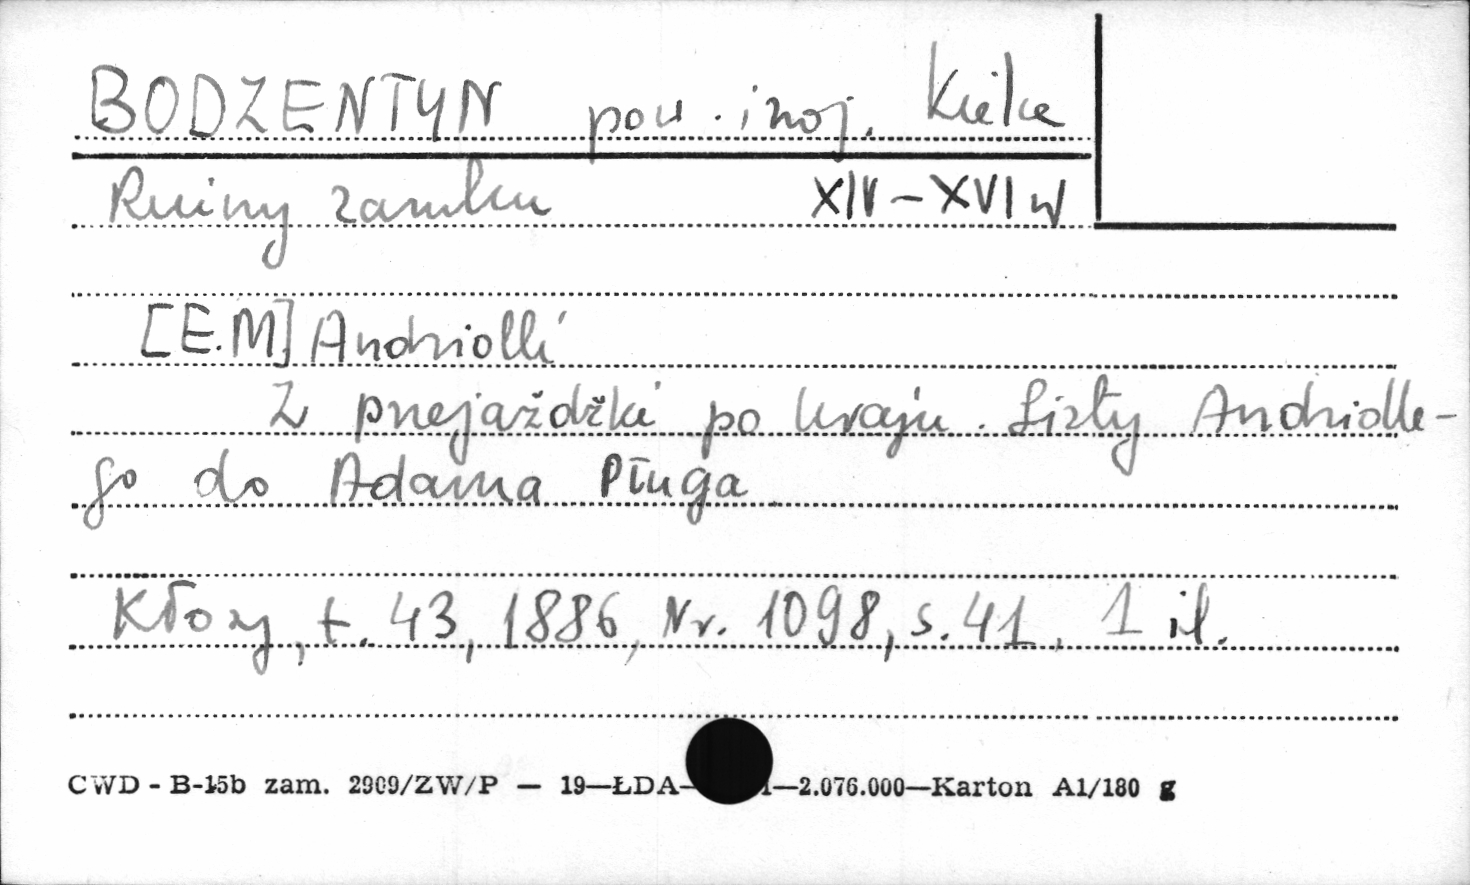 BODZENTYN pow. i woj. Kielce
Ruiny zamku XIV–XVI w
[E.M] Andriolli
Z przejażdżki po kraju. Listy Andriolle-
go do Adama Pługa
Kłosy, t. 43, 1886, Nr. 1098, s. 41, 1 il.
CWD - B-15b zam. 2909/ZW/P — 19—ŁDA— —2.076.000—Karton A1/180 g